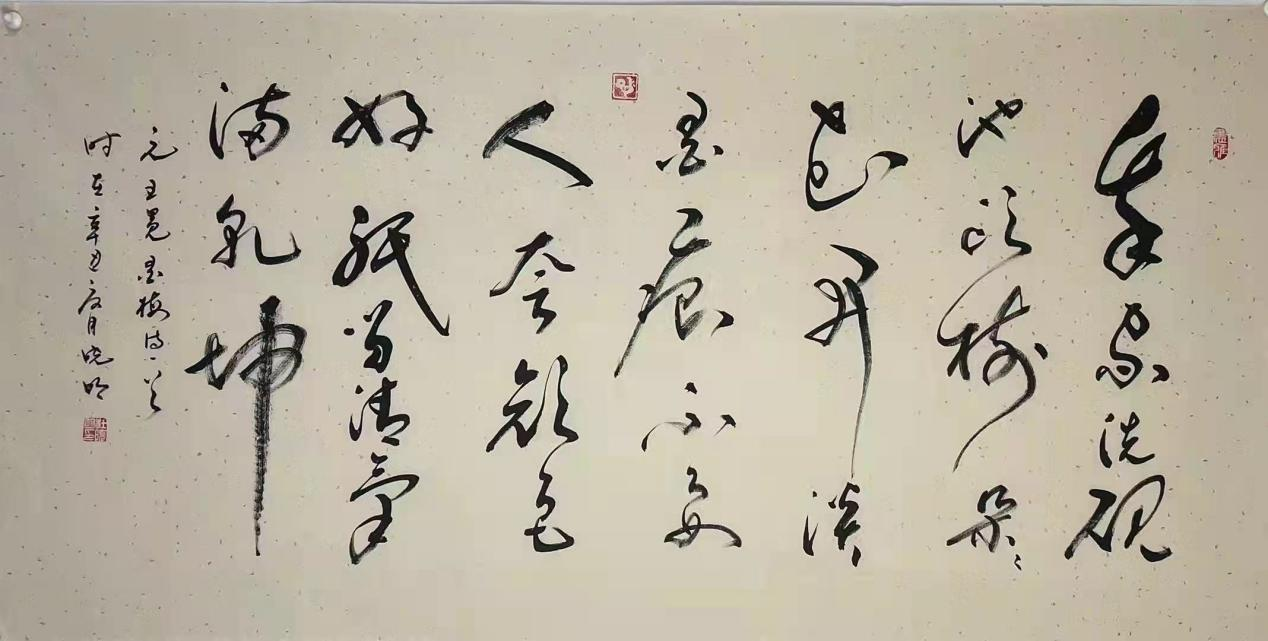 我家洗砚
池头树朵々
花开淡
墨痕不要
人夸颜色
好祇留清气
满乾坤
元王冕墨梅诗一首
时在辛丑夏月晓明